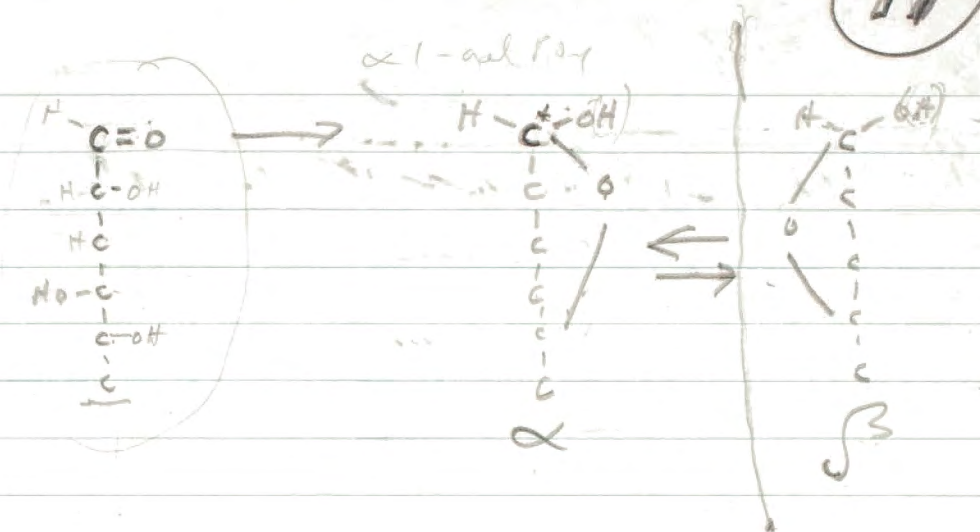 H
C=O
H-C-OH
HC
HO-C-
C-OH
C
α 1-
H C* OH
C O
C
C
C
C
α
H C OH
C
O
C
C
C
β